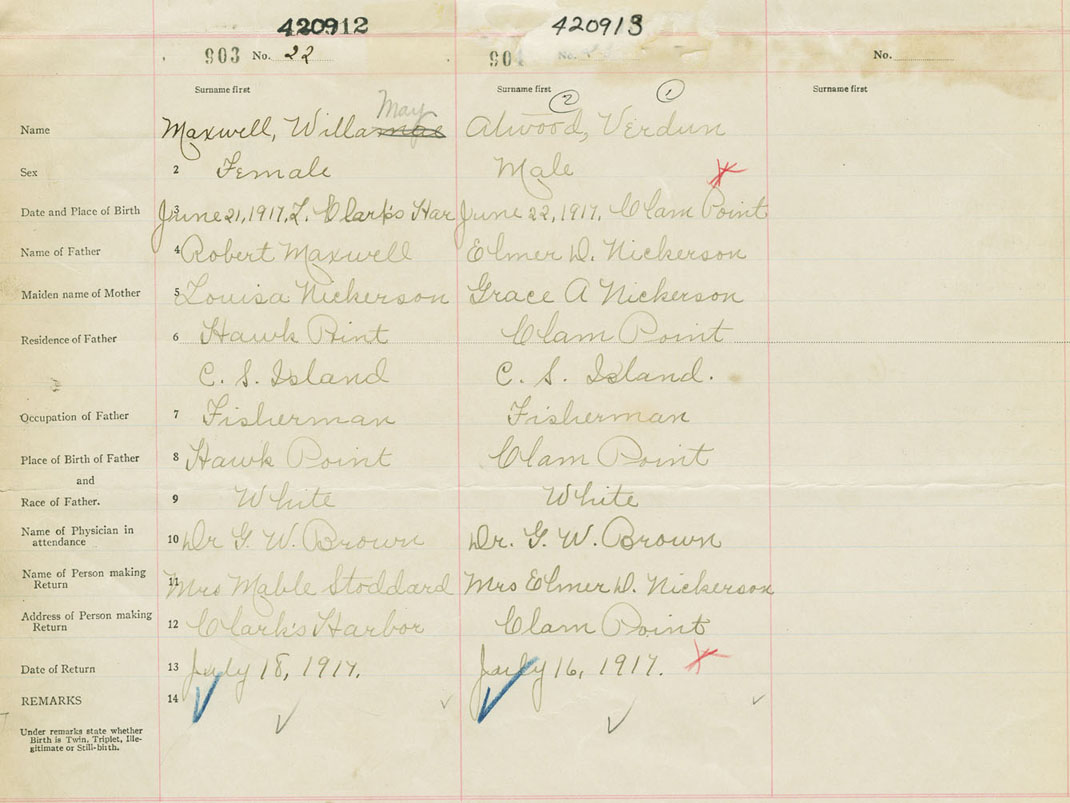 420912 420913
903 No. 22 904 No. No.
Surname first Surname first Surname first
② ①
May
Name Maxwell, Willa mae Atwood, Verdun
Sex 2 Female Male
Date and Place of Birth 3 June 21, 1917, L. Clark's Har June 22, 1917, Clam Point
Name of Father 4 Robert Maxwell Elmer D. Nickerson
Maiden name of Mother 5 Louisa Nickerson Grace A Nickerson
Residence of Father 6 Hawk Point Clam Point
C. S. Island C. S. Island.
Occupation of Father 7 Fisherman Fisherman
Place of Birth of Father 8 Hawk Point Clam Point
and
Race of Father. 9 White White
Name of Physician in
attendance 10 Dr G. W. Brown Dr. G. W. Brown
Name of Person making
Return 11 Mrs Mable Stoddard Mrs Elmer D. Nickerson
Address of Person making
Return 12 Clark's Harbor Clam Point
Date of Return 13 July 18, 1917. July 16, 1917.
REMARKS 14
Under remarks state whether
Birth is Twin, Triplet, Ille-
gitimate or Still-birth.